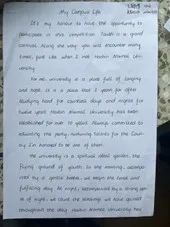 My Campus Life
It's my honour to have the opportunity to
participate in this competition. Youth is a grand
carnival. Along the way you will encounter many
times, just like when I met Harbin Normal Uni-
versity.
For me, university is a place full of longing
and hope. It is a place that I yearn for after
studying hard for countless days and nights for
twelve years. Harbin Normal University has been
established for over 70 years. Normal committed to
educating the party, nurturing talents for the Coun-
try. I'm honored to be one of them.
The university is a spiritual ideal garden, the
flying ground of youth. In the morning, accompa-
nied by a gentle breeze, we begin the new and
fulfilling day. At night, accompanied by a strong sen-
se of night, we count the
throughout the day. Harbin Normal University has